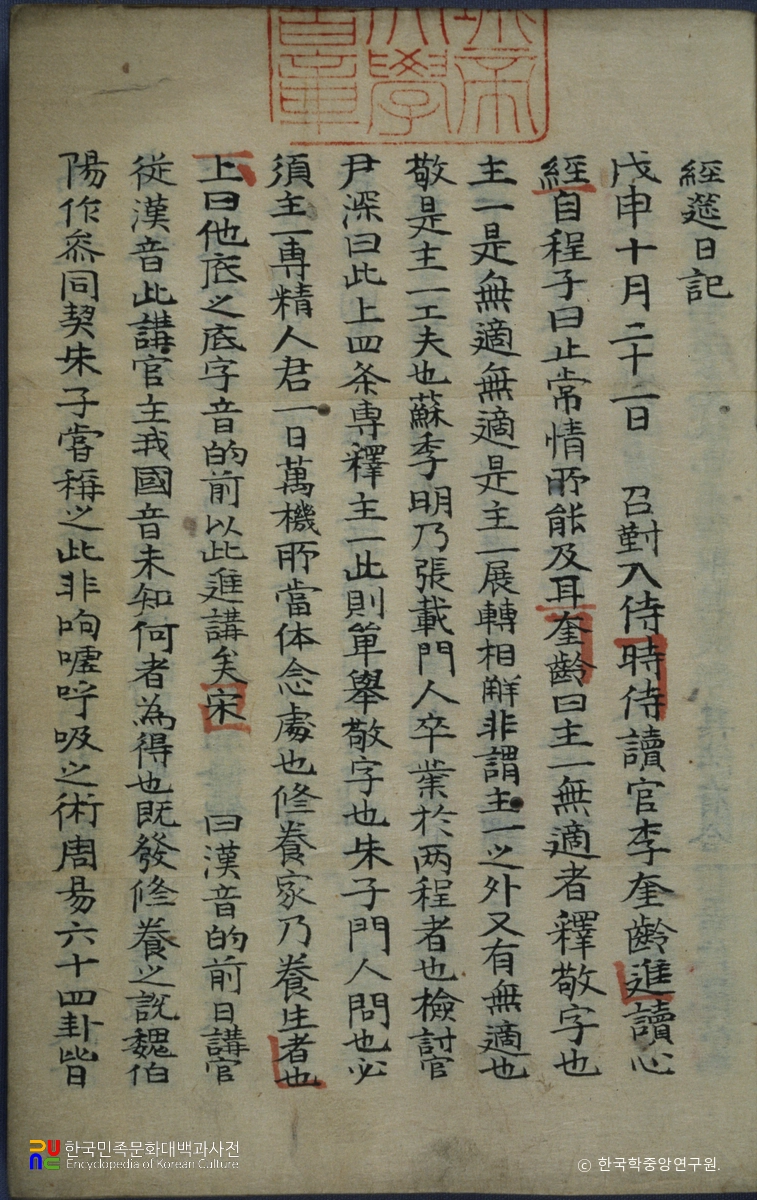 經筵日記
戊申十月二十二日 召對入侍時侍讀官李奎齡進讀心
經自程子曰止常情所能及耳奎齡曰主一無適者釋敬字也
主一是無適無適是主一展轉相解非謂主一之外又有無適也
敬是主一工夫也蘇季明乃張載門人卒業於两程者也檢討官
尹深曰此上四条專釋主一此則單擧敬字也朱子門人問也必
須主一專精人君一日萬機所當体念處也修養家乃養生者也
上曰他底之底字音的前以此進講矣宋 曰漢音的前日講官
從漢音此講官主我國音未知何者為得也旣發修養之説魏伯
陽作叅同契朱子嘗稱之此非呴噓呼吸之術周易六十四卦皆
한국민족문화대백과사전
Encyclopedia of Korean Culture
© 한국학중앙연구원.